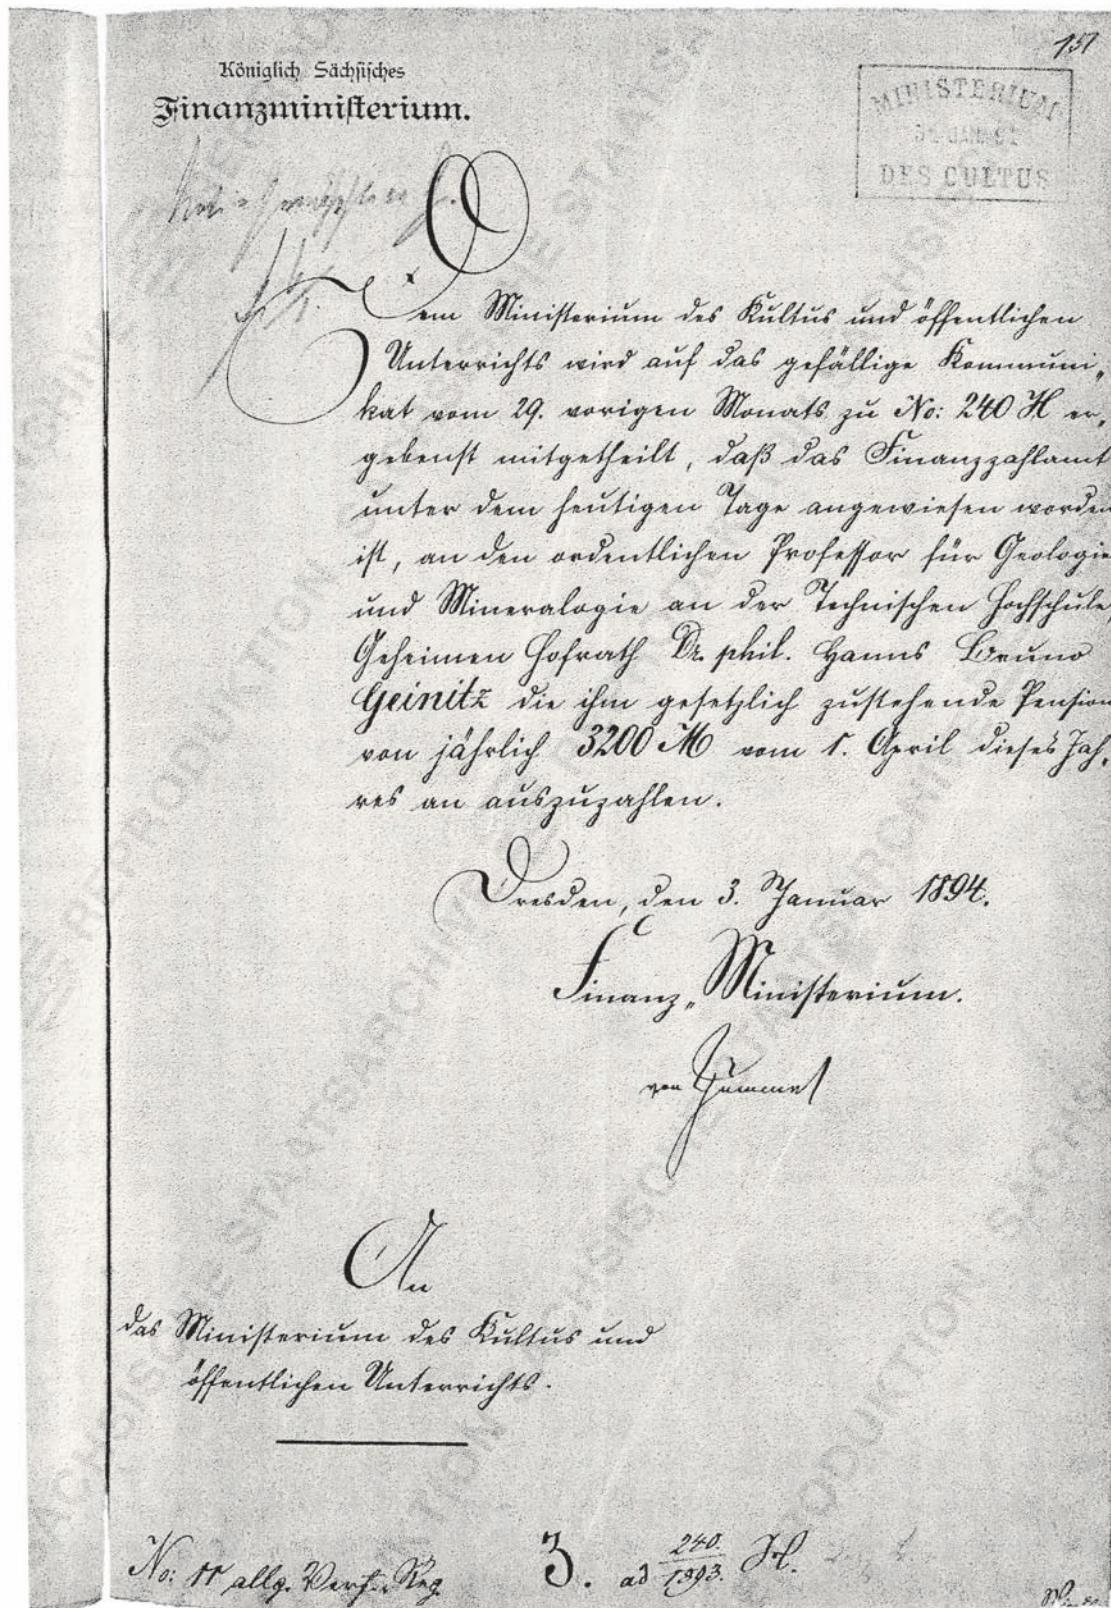 151
Königlich Sächsisches
Finanzministerium.
MINISTERIUM
DES CULTUS
Dem Ministerium des Kultus und öffentlichen
Unterrichts wird auf das gefällige Kommuni„
kat vom 29. vorigen Monats zu No: 240 H er„
gebenst mitgetheilt, daß das Finanzzahlamt
unter dem heutigen Tage angewiesen worden
ist, an den ordentlichen Professor für Geologie
und Mineralogie an der Technischen Hochschule,
Geheimen Hofrath Dr. phil. Hanns Bruno
Geinitz die ihm gesetzlich zustehende Pension
von jährlich 3200 M vom 1. April dieses Jah„
res an auszuzahlen.
Dresden, den 3. Januar 1894.
Finanz„Ministerium.
von
An
das Ministerium des Kultus und
öffentlichen Unterrichts.
No: 11 allg. Reg.
3. ad 240./1893. H.